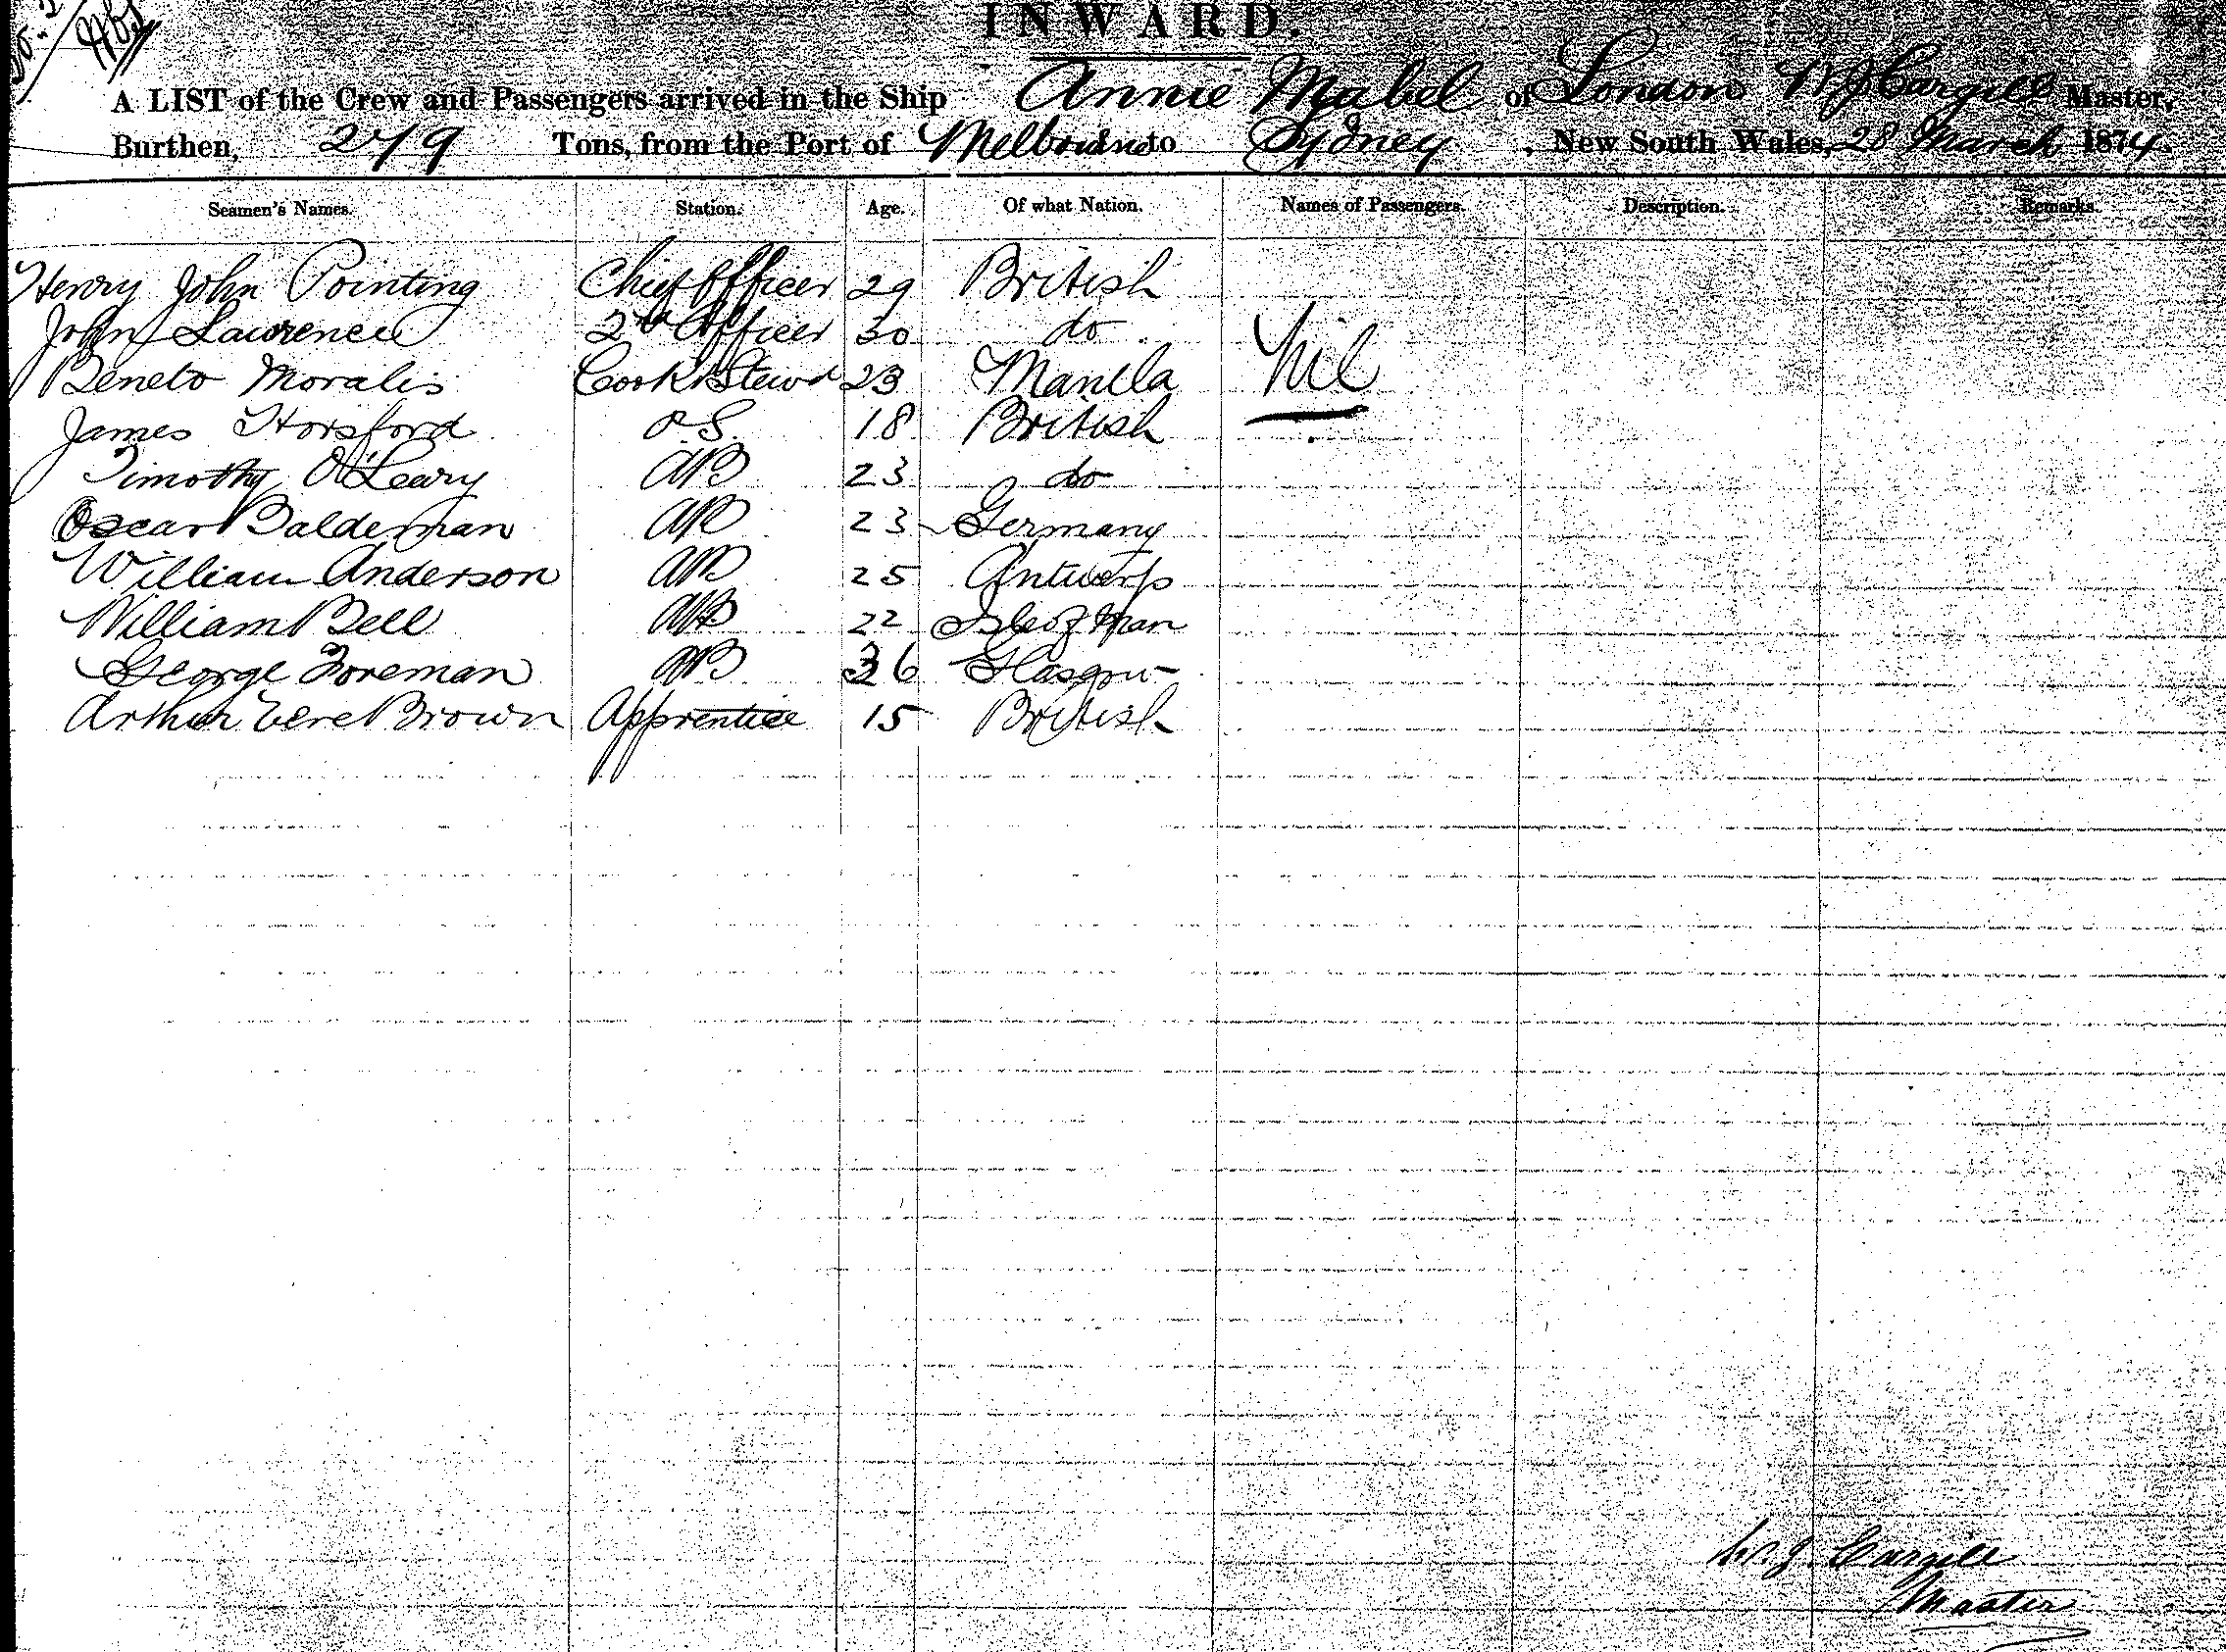 INWARD.
A LIST of the Crew and Passengers arrived in the Ship Annie Mabel of London W J Cargill Master,
Burthen, 279 Tons, from the Port of Melbourne to Sydney, New South Wales, 28 March 1874.
Seamen's Names. Station. Age. Of what Nation. Names of Passengers. Description. Remarks.
Henry John Pointing Chief Officer 29 British
John Lawrence 2nd Officer 30 do
Beneto Moralis Cook & Stewd 23 Manilla Nil
James Horsford O.S. 18 British
Timothy O'Leary AB 23 do
Oscar Balderman AB 23 Germany
William Anderson AB 25 Antwerp
William Bell AB 22 Isle of Man
George Foreman AB 36 Glasgow
Arthur Vere Brown Apprentice 15 British
W. J. Cargill
Master